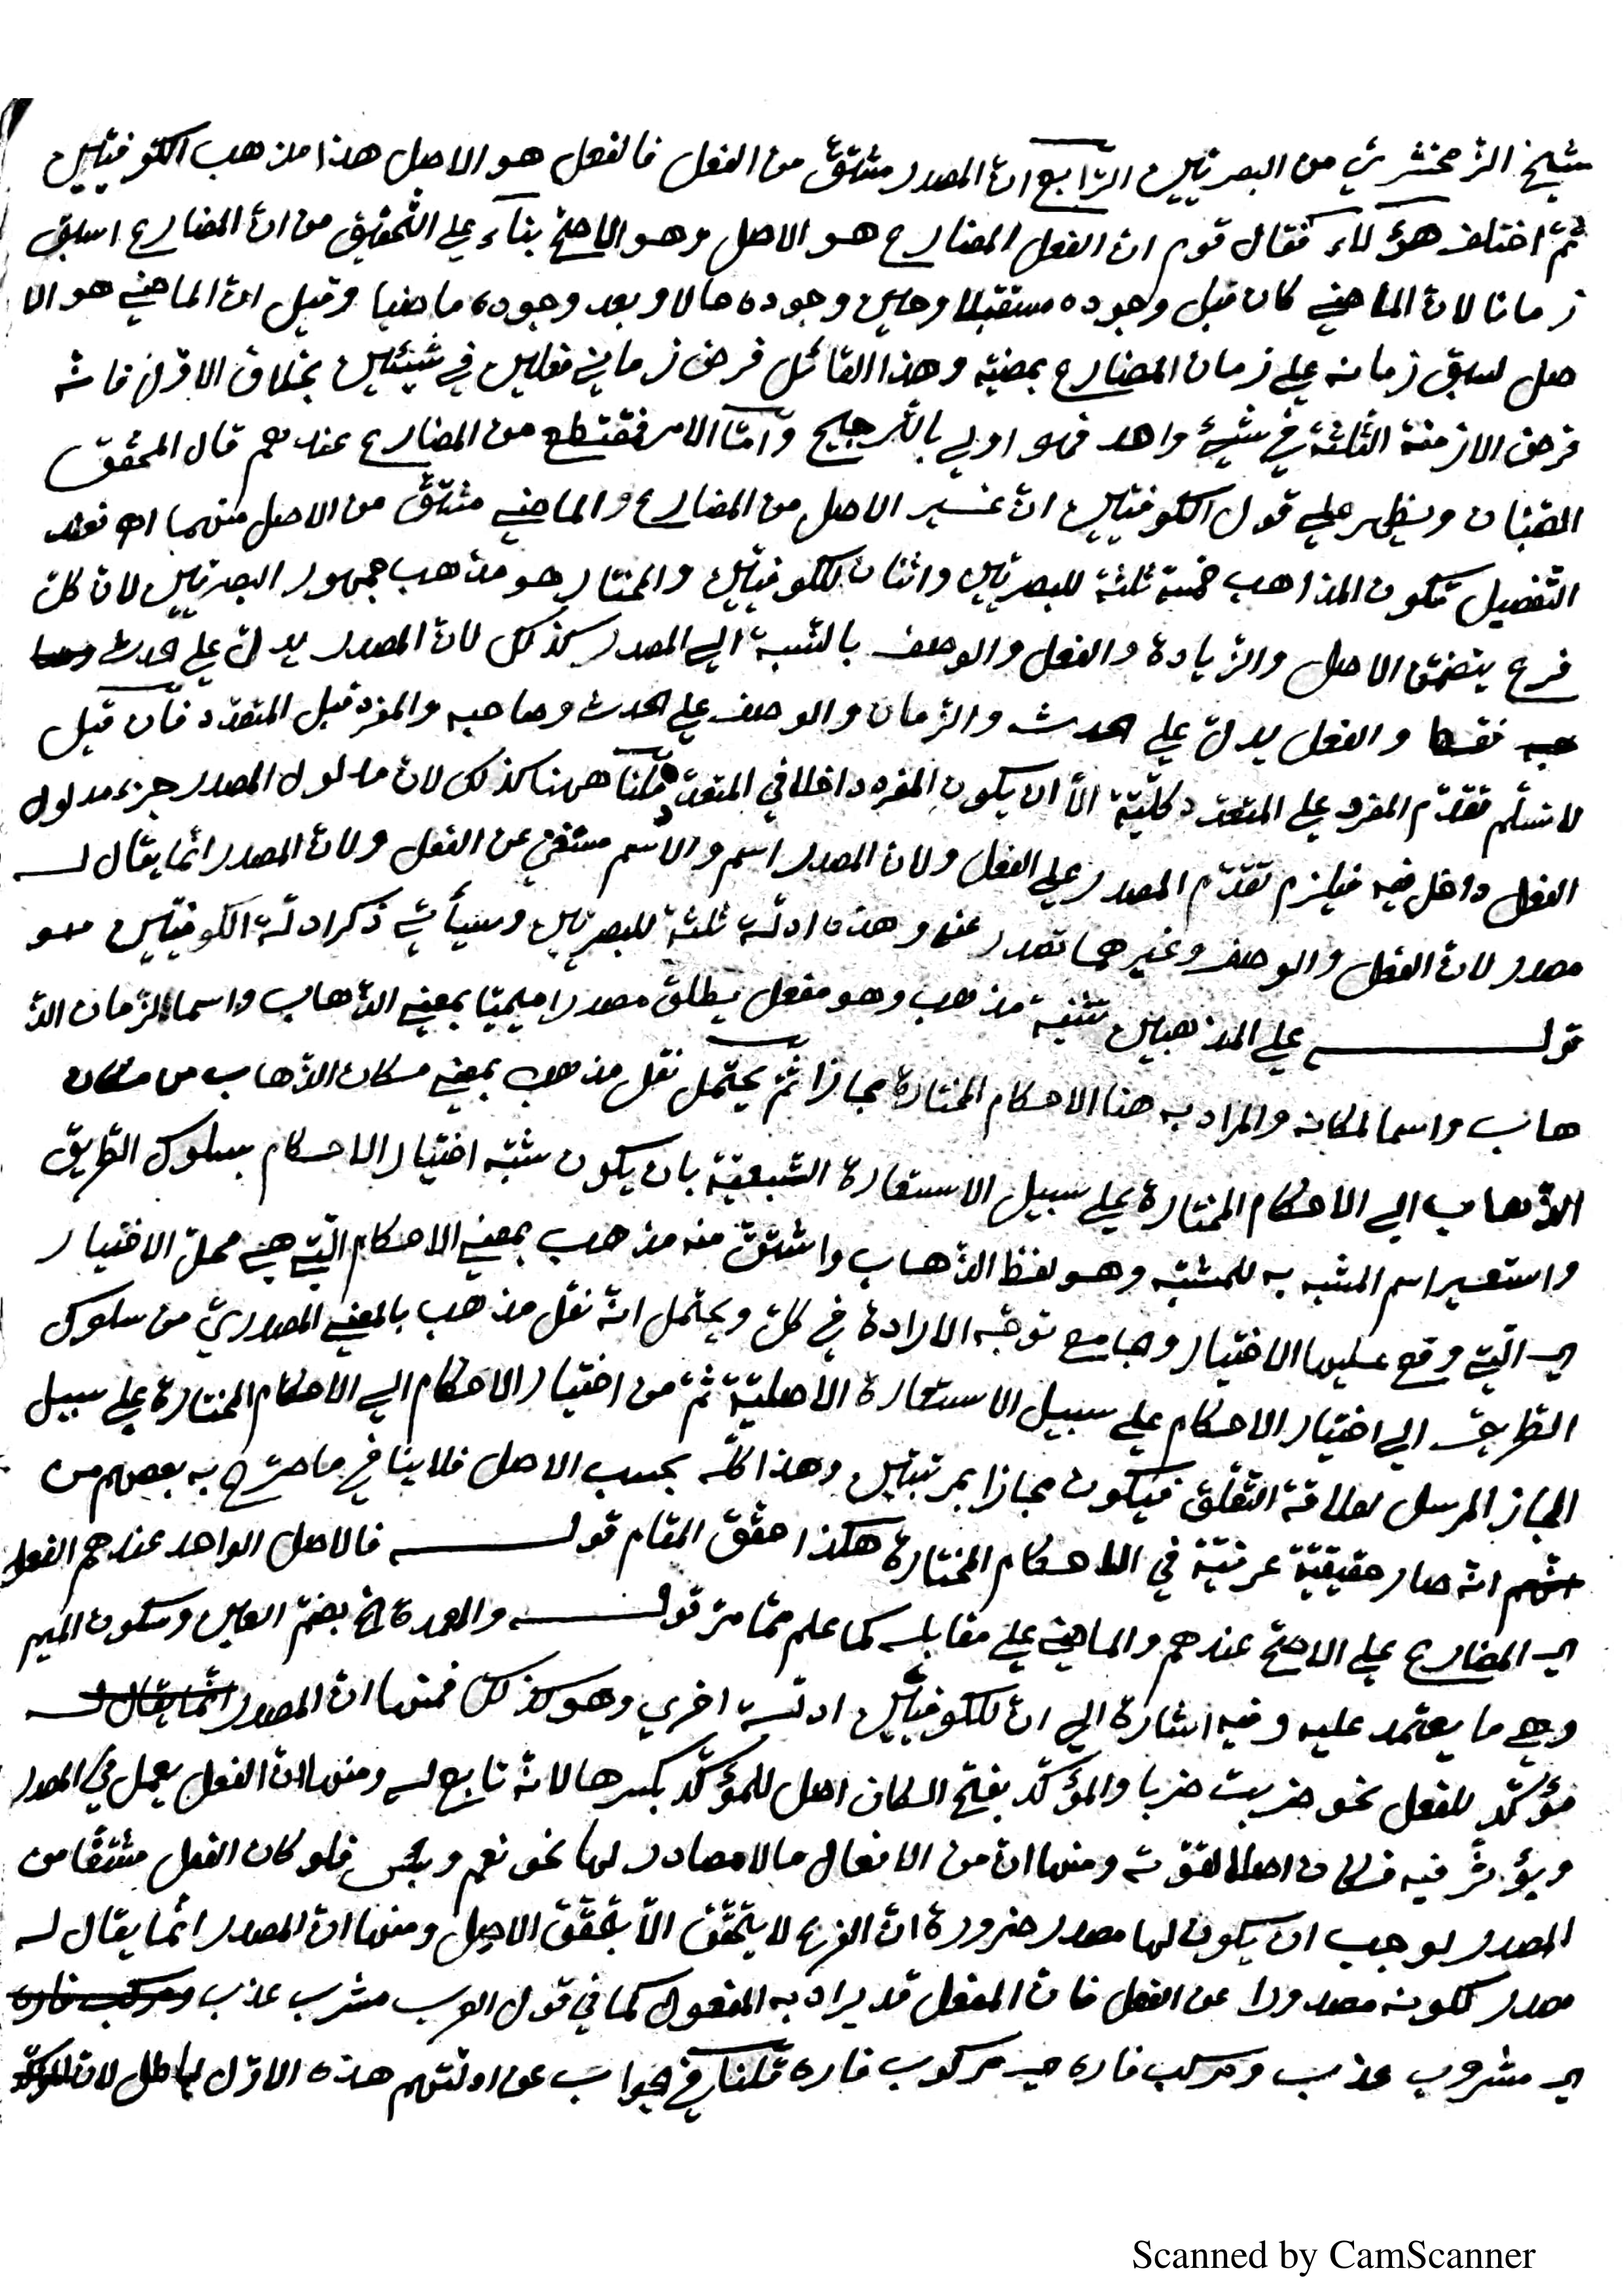 شيخ الزمخشري من البصريّين الرّابع انّ المصدر مشتقّ من الفعل فالفعل هو الاصل هذا مذهب الكوفيّين
ثمّ اختلف هؤلاء فقال قوم ان الفعل المضارع هو الاصل وهو الاصحّ بناء علي التّحقيق من انّ المضارع اسبق
زمانا لانّ الماضي كان قبل وجوده مستقبلا وحين وجوده حالا وبعد وجوده ماضيا وقيل انّ الماضي هو الا
صل لسبق زمانه علي زمان المضارع بمضيّه وهذا القائل فرض زماني فعلين في شيئين بخلاف الاوّل فانّه
فرض الازمنة الثّلثة في شيئ واحد فهو اولي بالتّرجيح وامّا الامر فمقتطع من المضارع عندهم قال المحقّق
الصّبّان ويظهر علي قول الكوفيّين انّ غير الاصل من المضارع والماضي مشتقّ من الاصل منهما اه فعند
التّفصيل تكون المذاهب خمسة ثلثة للبصريّين واثنان للكوفيّين والمختار هو مذهب جمهور البصريّين لانّ كلّ
فرع يتضمّن الاصل والزّيادة والفعل والوصف بالنّسبة الي المصدر كذلك لانّ المصدر يدلّ علي حدث
فقط والفعل يدلّ علي الحدث والزّمان والوصف علي الحدث وصاحبه والمفرد قبل المتعدّد فان قيل
لا نسلّم تقدّم المفرد علي المتعدّد كلّيّة الّا ان يكون المفرد داخلا في المتعدّد قلنا ههنا كذلك لانّ مدلول المصدر جزء مدلول
الفعل داخل فيه فيلزم تقدّم المصدر علي الفعل ولانّ المصدر اسم والاسم مستغن عن الفعل ولانّ المصدر انّما يقال له
مصدر لانّ الفعل والوصف وغيرهما تصدر عنه وهذه ادلّة ثلثة للبصريّين وسيأتي ذكر ادلّة الكوفيّين
قوله علي المذهبين تثنية مذهب وهو مفعل يطلق مصدرا ميميّا بمعني الذّهاب واسما لزمان الذّ
هاب واسما لمكانه والمراد به هنا الاحكام المختارة مجازا ثمّ يحتمل نقل مذهب بمعني مكان الذّهاب من مكان
الذّهاب الي الاحكام المختارة علي سبيل الاستعارة التّبعيّة بان يكون شبّه اختيار الاحكام بسلوك الطّريق
واستعير اسم المشبه به للمشبّه وهو لفظ الذّهاب واشتقّ منه مذهب بمعني الاحكام الّتي هي محلّ الاختيار
اي الّتي وقع عليها الاختيار وجامع توجّه الارادة في كلّ ويحتمل انّه نقل مذهب بالمعني المصدريّ من سلوك
الطّريق الي اختيار الاحكام علي سبيل الاستعارة الاصليّة ثمّ من اختيار الاحكام الي الاحكام المختارة علي سبيل
المجاز المرسل لعلاقة التّعلّق فيكون مجازا بمرتبتين وهذا كلّه بحسب الاصل فلا ينافي ما صرّح به بعضهم من
انّه صار حقيقيّة عرفيّة في الاحكام المختارة هكذا حقّق المقام قوله فالاصل الواحد عندهم الفعل
اي المضارع علي الاصحّ عندهم والماضي علي مقابله كما علم ممّا مرّ قوله والعمدة الخ بضمّ العين وسكون الميم
وهي ما يعتمد عليه وفيه اشارة الي انّ للكوفيّين ادلّة اخري وهو كذلك فمنها انّ المصدر
مؤكّد للفعل نحو ضربت ضربا والمؤكّد بفتح الكاف اصل للمؤكّد بكسرها لانّه تابع له ومنها انّ الفعل يعمل في المصدر
ويؤثّر فيه فكان اصلا لقوّته ومنها انّ من الافعال ما لا مصادر لها نحو نعم وبئس فلو كان الفعل مشتقّا من
المصدر لوجب ان يكون لها مصدر ضرورة انّ الفرع لا يتحقّق الّا بتحقّق الاصل ومنها انّ المصدر انّما يقال له
مصدر لكونه مصدورا عن الفعل فانّ المفعل قد يراد به المفعول كما في قول العرب مشرب عذب ومركب فاره
اي مشروب عذب ومركب فاره اي مركوب فاره قلنا في جواب عن ادلّتهم هذه الاوّل باطل لانّ المؤكّد
Scanned by CamScanner